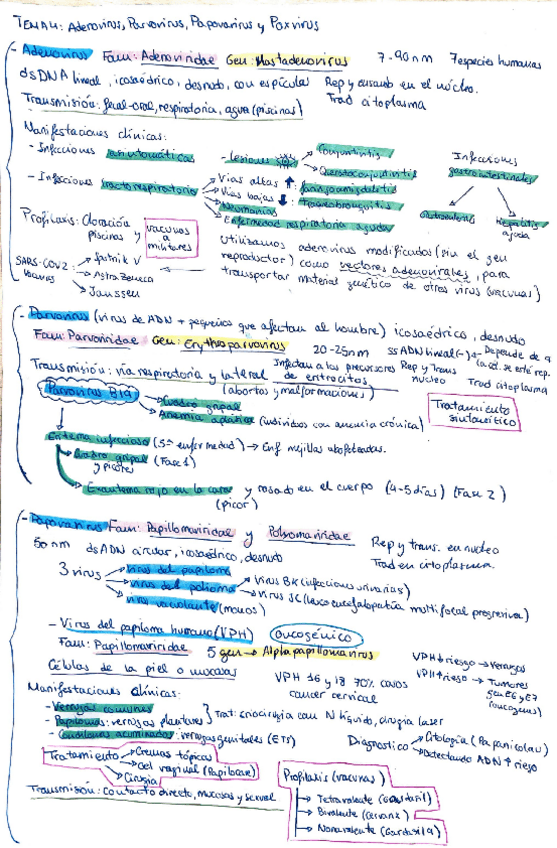 TEMA 4: Adenovirus, Parvovirus, Papovavirus y Poxvirus
- Adenovirus Fam: Adenoviridae Gen: Mastadenovirus 7-90nm 7 especies humanas
dsDNA lineal, icosaédrico, desnudo, con espículas Rep y ensamb en el núcleo.
Trad citoplasma
Transmisión: fecal-oral, respiratoria, agua (piscinas)
Manifestaciones clínicas:
- Infecciones asintomáticas
- Lesiones
Conjuntivitis
Queratoconjuntivitis
Infecciones gastrointestinales
- Infecciones tracto respiratorio
Vias altas ↑ faringoamigdalitis
Vias bajas ↓ traqueobronquitis
Neumonias
Enfermedad respiratoria aguda
Gastroenteritis
Hepatitis aguda
Profilaxis: Cloración piscinas y vacunas a militares
SARS-COV2 vacunas
Sputnik V
Astra Zeneca
Janssen
Utilizamos adenovirus modificados (sin el gen
reproductor) como vectores adenovirales, para
transportar material genético de otros virus (vacunas)
- Parvovirus (virus de ADN + pequeños que afectan al hombre) icosaédrico, desnudo
Fam: Parvoviridae Gen: Erythroparvovirus 20-25nm ssADN lineal
Depende de
Transmisión: vía respiratoria y lateral
Infectan a los precursores de eritrocitos
Rep y Trans núcleo
Trad citoplasma
(abortos y malformaciones)
Parvovirus B19
Cuadro gripal
Anemia aplásica (individuos con anemia crónica)
Tratamiento sintomático
Eritema infeccioso (5ª enfermedad) → Enf mejillas abofeteadas.
Cuadro gripal y picores (Fase 1)
Exantema rojo en la cara y rosado en el cuerpo (4-5 días) (Fase 2)
(picor)
- Papovavirus Fam: Papillomaviridae y Polyomaviridae
50 nm dsADN circular, icosaédrico, desnudo
Rep y trans. en nucleo
Trad en citoplasma.
3 virus
virus del papiloma
virus del polioma
Virus BK (infecciones urinarias)
virus JC (leucoencefalopatía multifocal progresiva)
virus vacuolante (monos)
- Virus del papiloma humano (VPH) oncogénico
Fam: Papillomaviridae 5 gen → Alphapapillomavirus
VPH ↓ riesgo → Verrugas
Células de la piel o mucosas
VPH 16 y 18 70% casos cancer cervical
VPH ↑ riesgo → Tumores
gen E6 y E7
(oncogenes)
Manifestaciones Clínicas:
- Verrugas comunes
- Papilomas: verrugas plantares
Trat: criocirugía con N líquido, cirugía laser
- Condilomas acuminados: verrugas genitales (ETS)
Diagnostico
Citología (Papanicolau)
Detectando ADN ↑ riesgo
Tratamiento
Cremas tópicas
Gel vaginal (Papilocare)
Cirugía
Profilaxis (vacunas)
Tetravalente (Gardasil)
Bivalente (Cervarix)
Nonavalente (Gardasil 9)
Transmisión: Contacto directo, mucosas y sexual